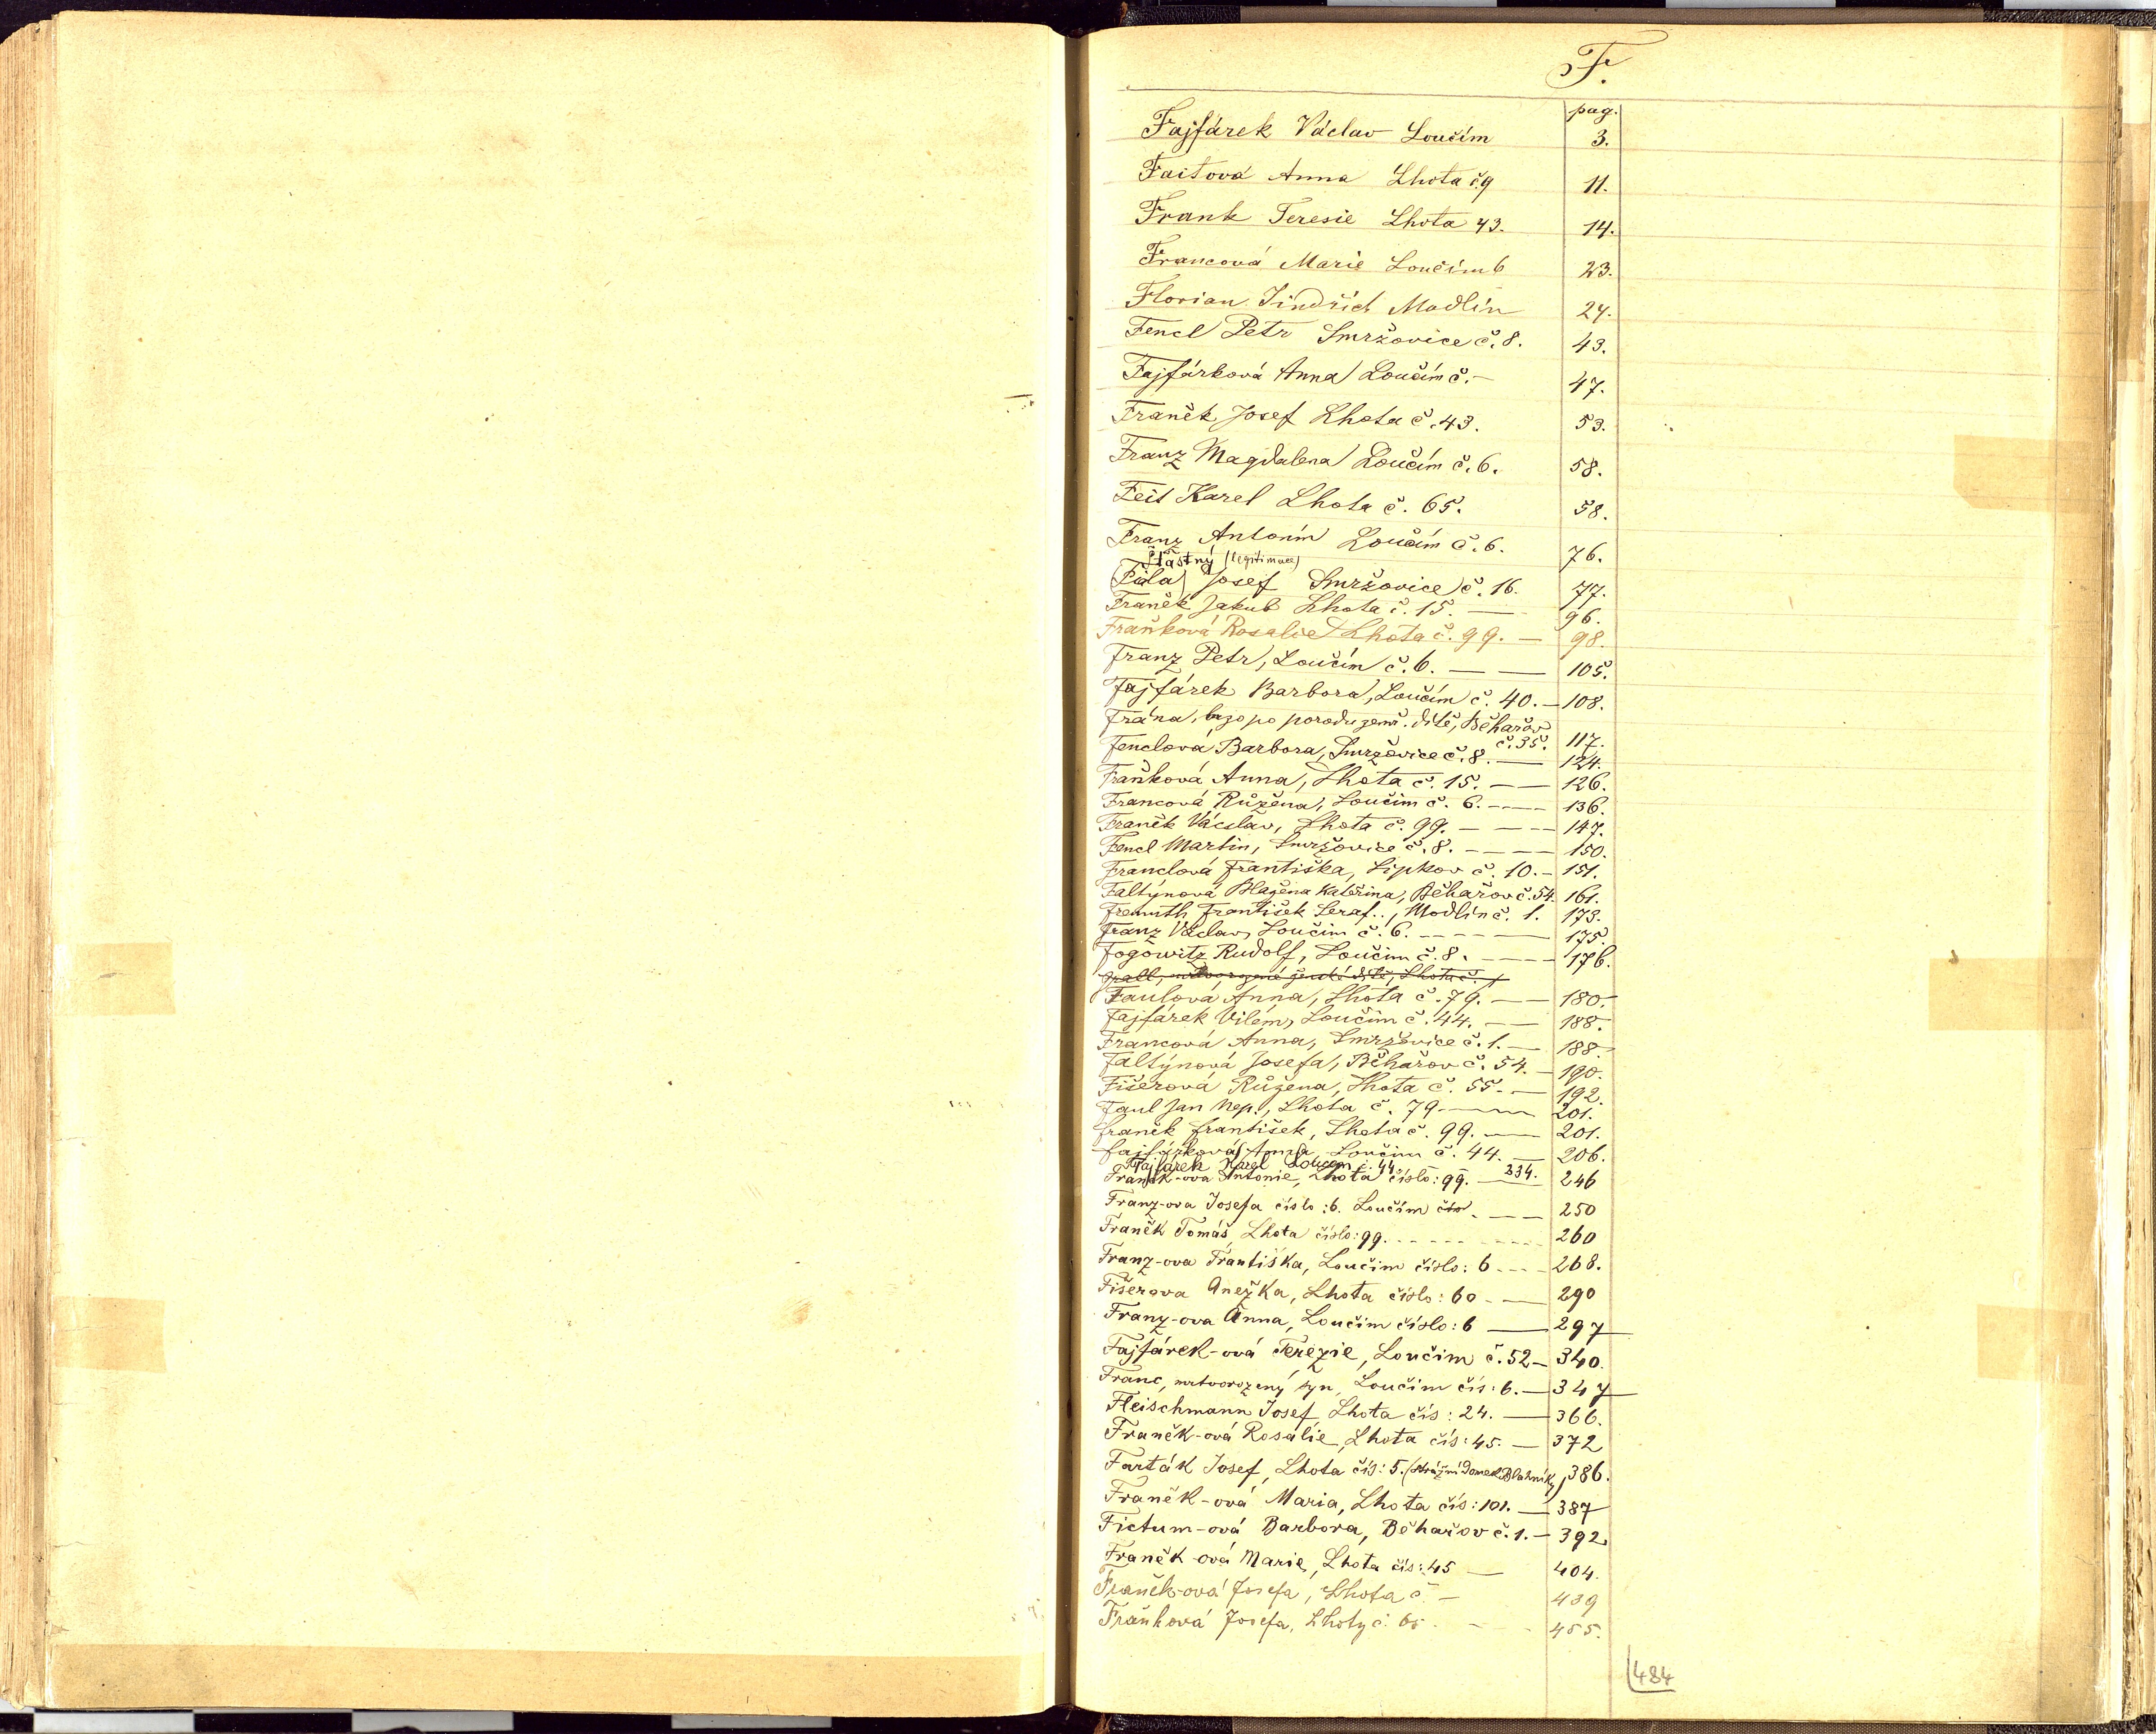 F.
pag.
Fajfárek Václav Loučím 3.
Faitová Anna Lhota č.9 11.
Frank Teresie Lhota 43. 14.
Francová Marie Loučím 6 23.
Florian Jindřich Modlín 24.
Fencl Petr Smržovice č. 8. 43.
Fajfárková Anna Loučím č. - 47.
Franěk Josef Lhota č. 43. 53.
Franz Magdalena Loučím č. 6. 58.
Feit Karel Lhota č. 65. 58.
Franz Antonín Loučím č. 6. 76.
Šťastný (legitimace)
Josef Smržovice č. 16. 77.
Franěk Jakub Lhota č. 15. — 96.
Fraňková Rosalie Lhota č. 99. — 98.
Franz Petr, Loučím č. 6. — — 105.
Fajfárek Barbora, Loučím č. 40. — 108.
Frána, brzo po porodu zemř. dítě, Běhařov
č. 35. 117.
Fenclová Barbora, Smržovice č. 8. — 124.
Fraňková Anna, Lhota č. 15. — — 126.
Francová Růžena, Loučim č. 6. — — 136.
Franěk Václav, Lhota č. 99. — — — 147.
Fencl Martin, Smržovice č. 8. — — — 150.
Franclová Františka, Lipkov č. 10. — 151.
Faltýnová Blažena Kateřina, Běhařov č. 54. 161.
Fremuth František Seraf., Modlín č. 1. 173.
Franz Václav, Loučim č. 6. — — — 175.
Fogowitz Rudolf, Loučim č. 8. — — — 176.
mrtvorozené ženské dítě, Lhota č.
Faulová Anna, Lhota č. 79. — — 180.
Fajfárek Vilém, Loučim č. 44. — — 188.
Francová Anna, Smržovice č. 1. — 188.
Faltýnová Josefa, Běhařov č. 54. — 190.
Fišerová Růžena, Lhota č. 55. — 192.
Faul Jan Nep., Lhota č. 79. — 201.
Franěk František, Lhota č. 99. — 201.
Fajfárková Anna Loučim č. 44. — 206.
Fajfárek Karel Loučim č. 44. 234.
Franěk-ova Antonie, Lhota číslo: 99. — 246
Franz-ova Josefa číslo: 6. Loučím — — 250
Franěk Tomáš, Lhota číslo: 99. - - - - 260
Franz-ova Františka, Loučim číslo: 6 - - - 268.
Fišerova Anežka, Lhota číslo: 60 - — 290
Franz-ova Anna, Loučim číslo: 6 — 297
Fajfárek-ová Terezie, Loučim č. 52 — 340.
Franc, mrtvorozený syn, Loučim čís: 6. — 347
Fleischmann Josef, Lhota čís: 24. — 366.
Franěk-ová Rosálie, Lhota čís: 45. — 372
Farták Josef, Lhota čís: 5. (strážní domek Blatník) 386.
Franěk-ová Maria, Lhota čís: 101. — 387
Fictum-ová Barbora, Běhařov č. 1. — 392.
Franěk-ová Marie, Lhota čís: 45 — 404.
Franěk-ová Josefa, Lhota č. — 439
Fraňková Josefa, Lhoty č. 65. - - - 455.
484